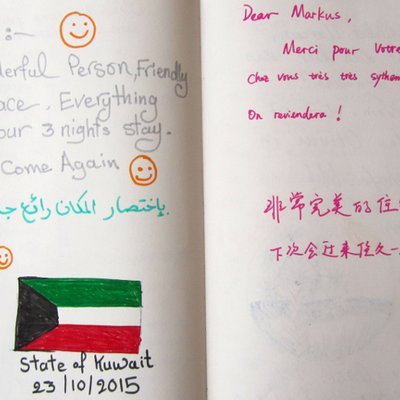 :-
derful Person, Friendly
ace, Everything
our 3 nights stay.
Come Again
بإختصار المكان رائع جد
State of Kuwait
23/10/2015
Dear Markus,
Merci pour Votre
Chez vous très très sythem
On reviendera !
非常完美的住
下次会过来住久一